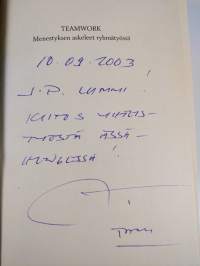 TEAMWORK
Menestyksen askeleet ryhmätyössä
10.09.2003
J.P. LUMMI!
KIITOS YHTEIS-
TYÖSTÄ ÄSSÄ-
HENGESSÄ!